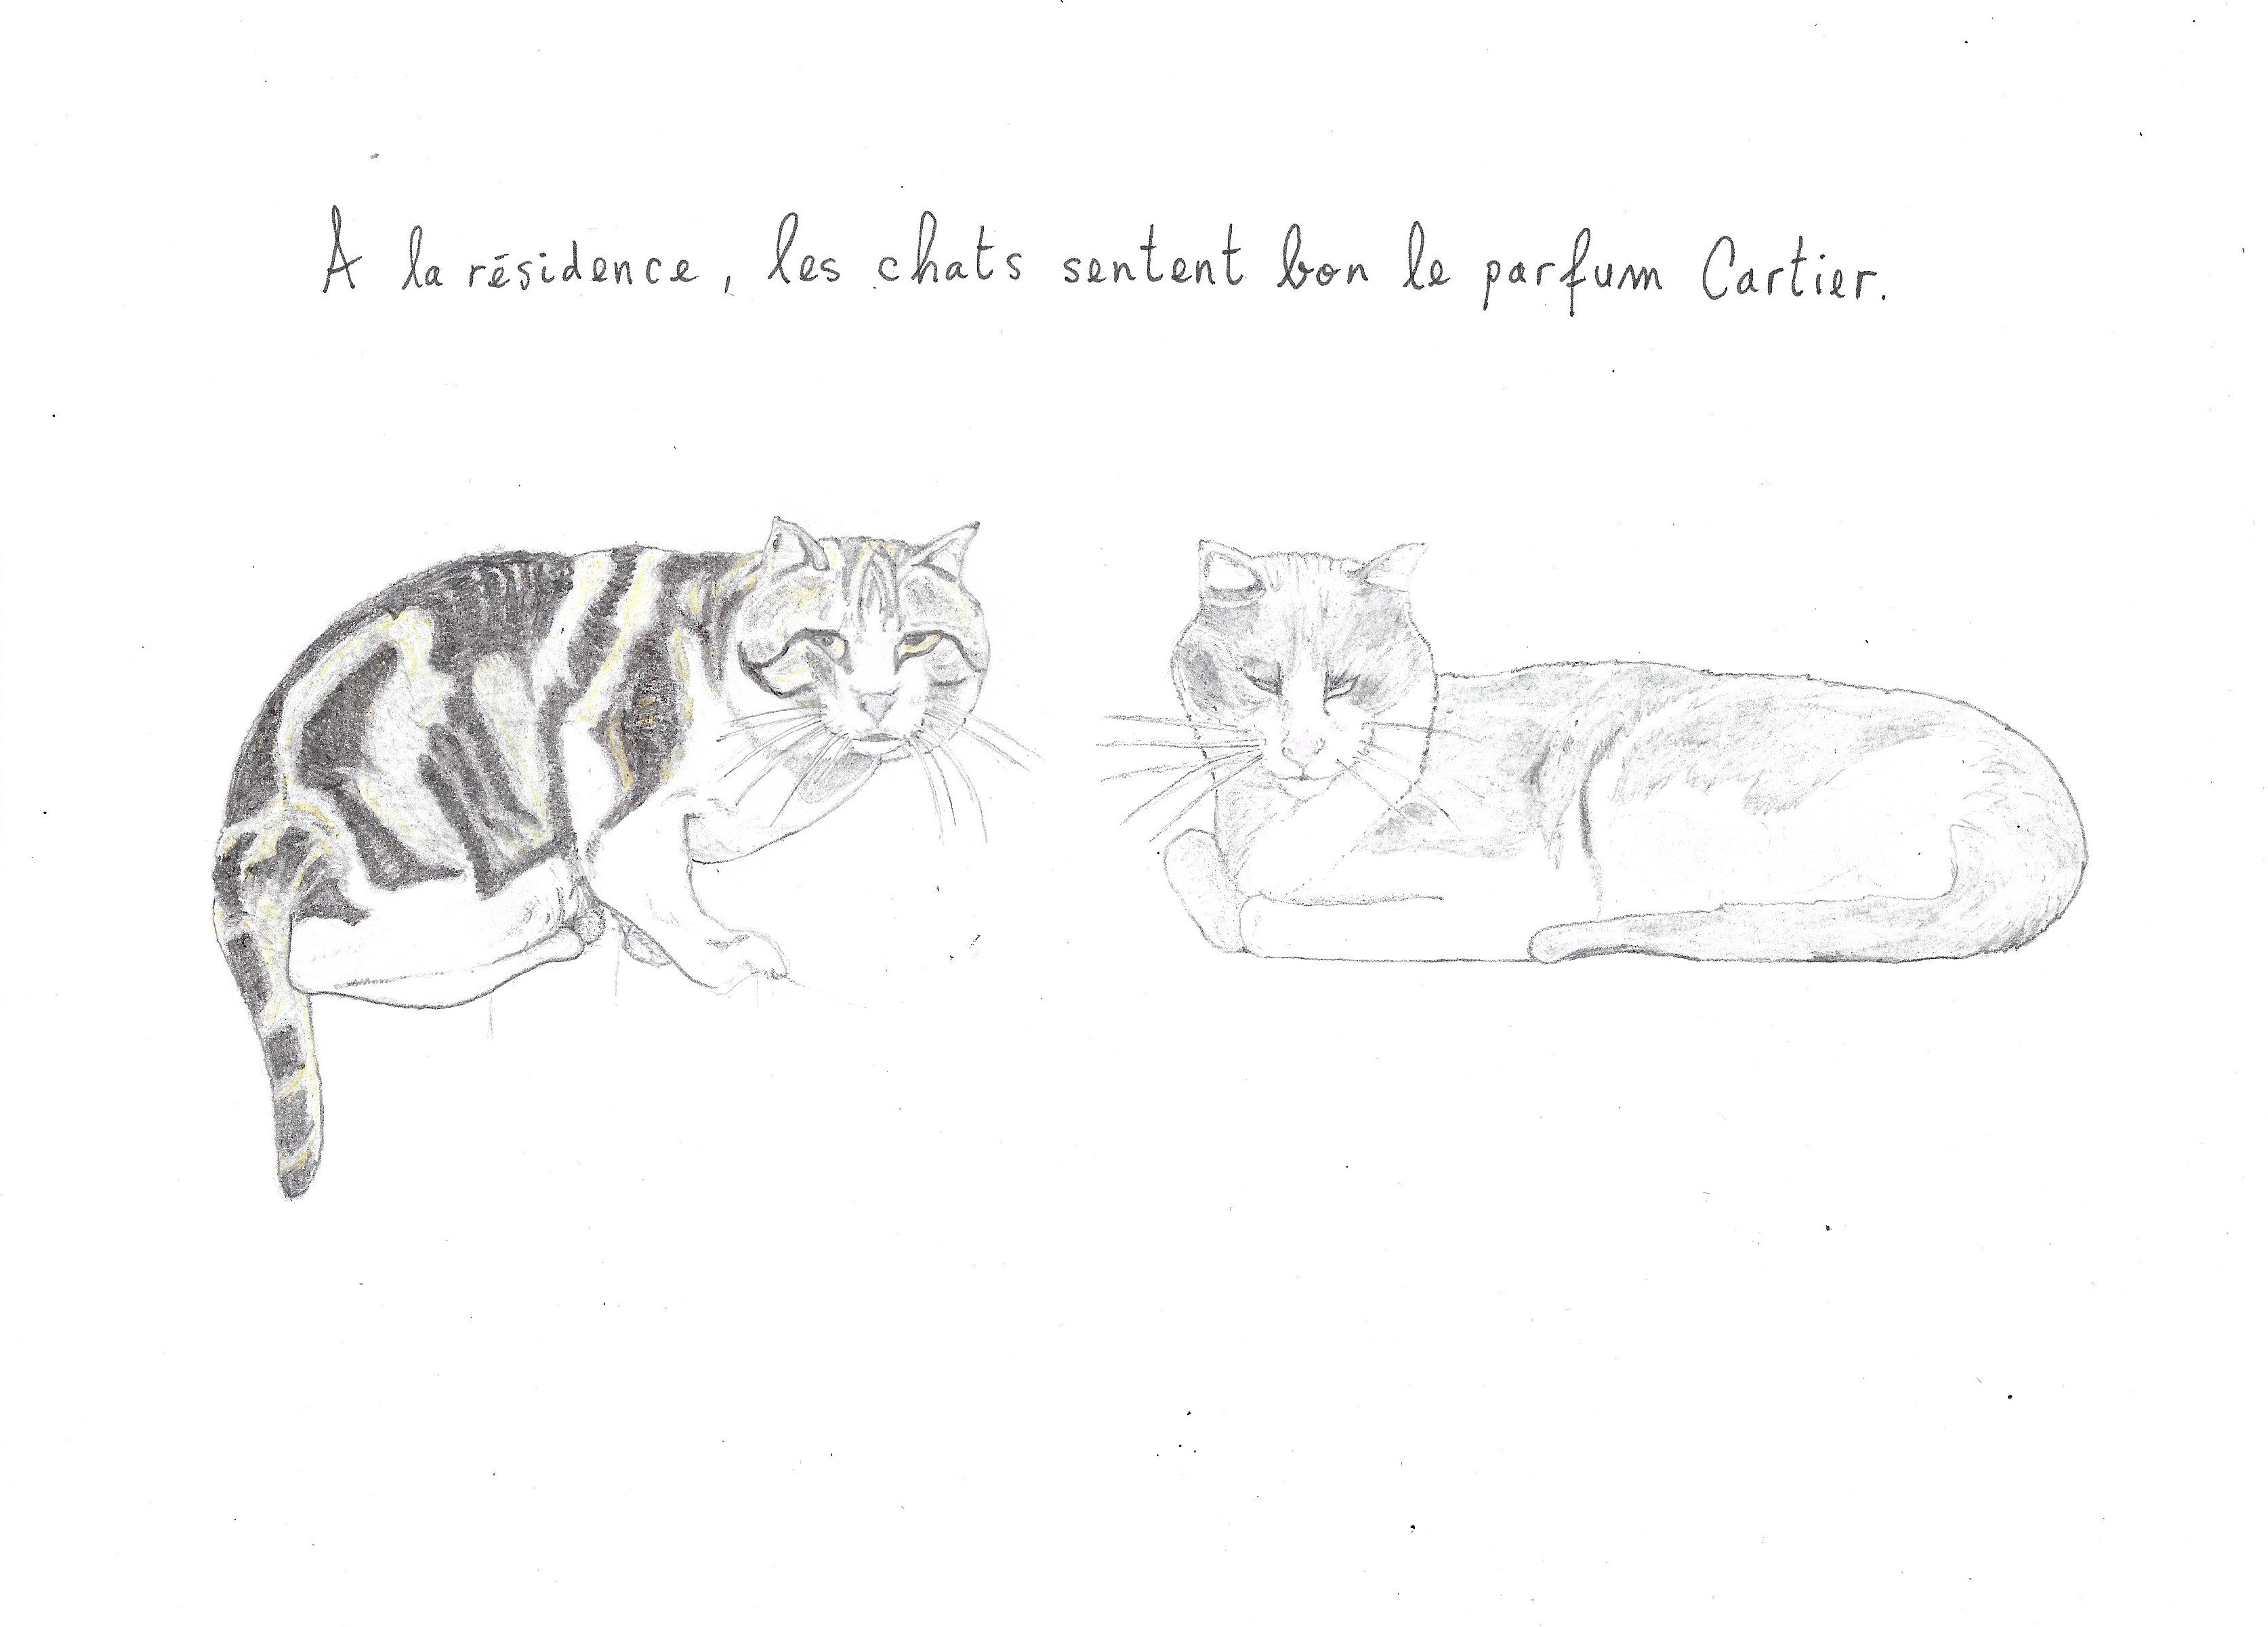 A la résidence, les chats sentent bon le parfum Cartier.